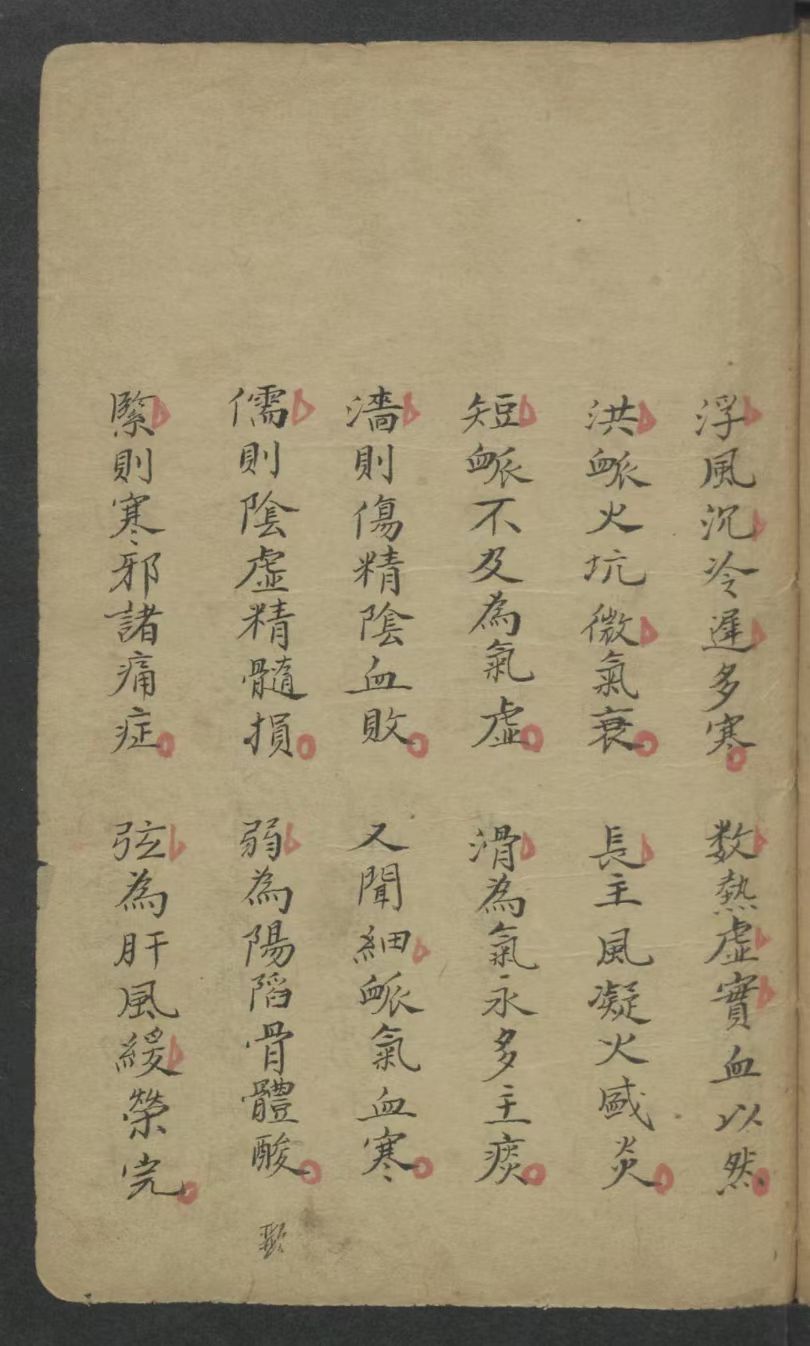 浮風沉冷遲多寒　数熱虛實血以然
洪衇火坑微氣衰　長主風凝火盛炎
短衇不及為氣虛　滑為氣永多主痰
濇則傷精陰血敗　又聞細衇氣血寒
儒則陰虛精髓損　弱為陽陷骨體酸
緊則寒邪諸痛症　弦為肝風緩榮完